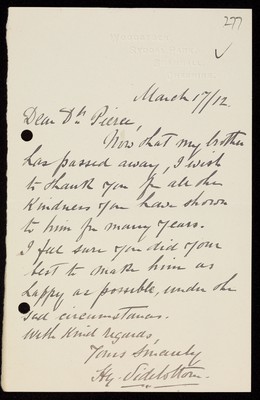 277
March 17/12.
Dear Dr. Pierce,
Now that my brother
has passed away, I wish
to thank you for all the
kindness you have shown
to him for many years.
I feel sure you did your
best to make him as
happy as possible, under the
sad circumstances.
With kind regards,
Yours sincerely
Hy. Sidebottom.